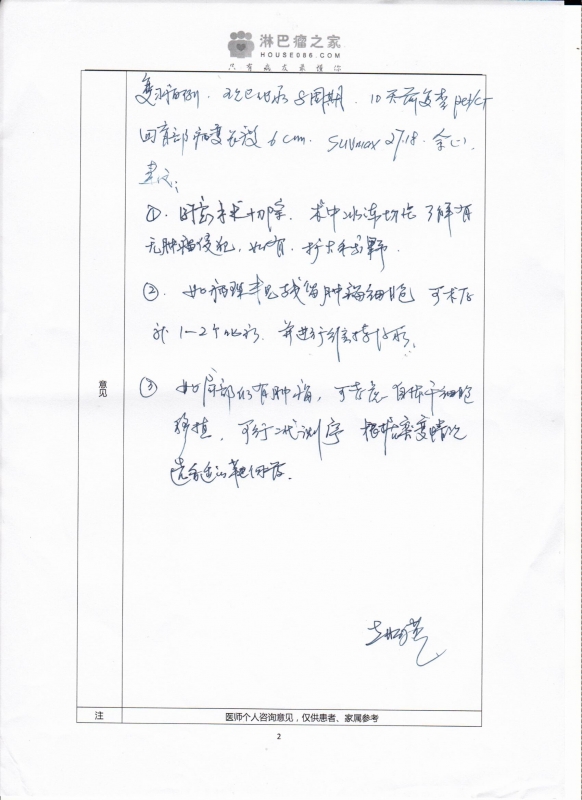 淋巴瘤之家
HOUSE086.COM
只有病友最懂你
复习病例. 现已化疗8周期. 10天前复查PET/CT
回盲部病变长径6cm. SUVmax 27.18. 余(-).
建议:
①. 回盲手术切除. 术中冰冻切片了解有
无肿瘤侵犯, 如有. 扩大手术野.
②. 如病理未见残留肿瘤细胞 可术后
补1-2个化疗. 并进行维持治疗.
③ 如局部仍有肿瘤, 可考虑自体干细胞
移植. 可行二代测序 根据突变情况
选合适的靶向治疗.
意见
注
医师个人咨询意见，仅供患者、家属参考
2